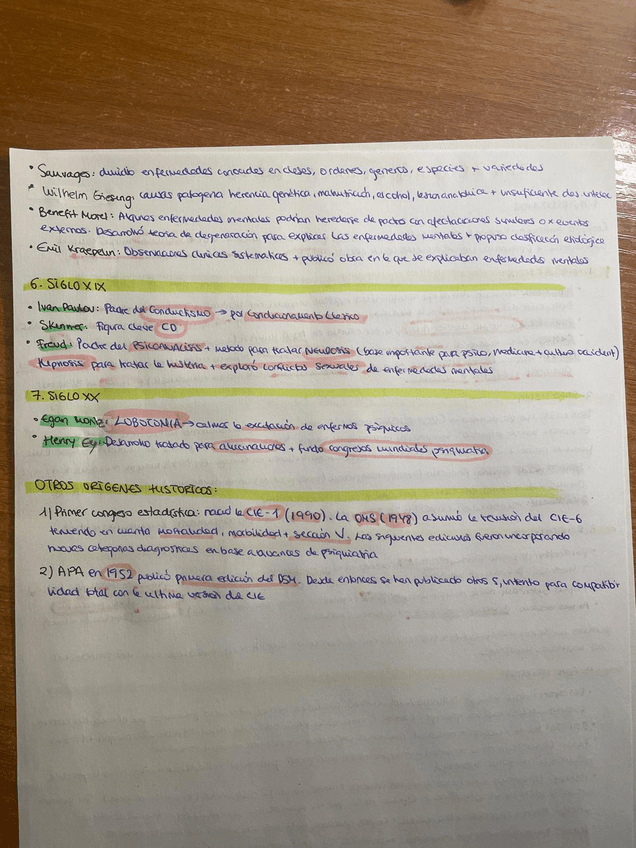 • Sauvages: dividio enfermedades conocidas en clases, ordenes, generos, especies + variedades
• Wilhelm Giesung: causas patogena herencia genética, malnutrición, alcohol, lesion anatómica + insuficiente des. intelec
• Benefit Morel: Algunas enfermedades mentales podrían heredarse de padres con afectaciones similares o x eventos
externos. Desarrolló teoría de degeneración para explicar las enfermedades mentales + propuso clasificación etiológica
• Emil Kraepelin: Observaciones clínicas sistematicas + publicó obra en la que se explicaban enfermedades mentales
6. SIGLO XIX
• Ivan Paulov: Padre del Conductismo → por Condicionamiento Clásico
• Skinner: Figura clave CD
• Freud: Padre del PSICOANALISIS + metodo para tratar NEUROSIS (base importante para psico, medicina + cultura occident)
Hipnosis para tratar la histeria + exploró conflictos sexuales de enfermedades mentales
7. SIGLO XX
• Egan Moniz: LOBOTOMIA → calmar la excitación de enfermos psíquicos
• Henry Ey: Desarrollo tratado para alucinaciones + fundo congresos mundiales psiquiatria
OTROS ORIGENES HISTORICOS:
1) Primer congreso estadística: nació la CIE-1 (1990). La OMS (1948) asumió la revisión del CIE-6
teniendo en cuenta mortalidad, morbilidad + sección V. Las siguientes ediciones fueron incorporando
nuevas categorías diagnosticas en base a avances de psiquiatria
2) APA en 1952 publicó primera edición del DSM. Desde entonces se han publicado otros 5, intento para compatibi
lidad total con la ultima versión de CIE